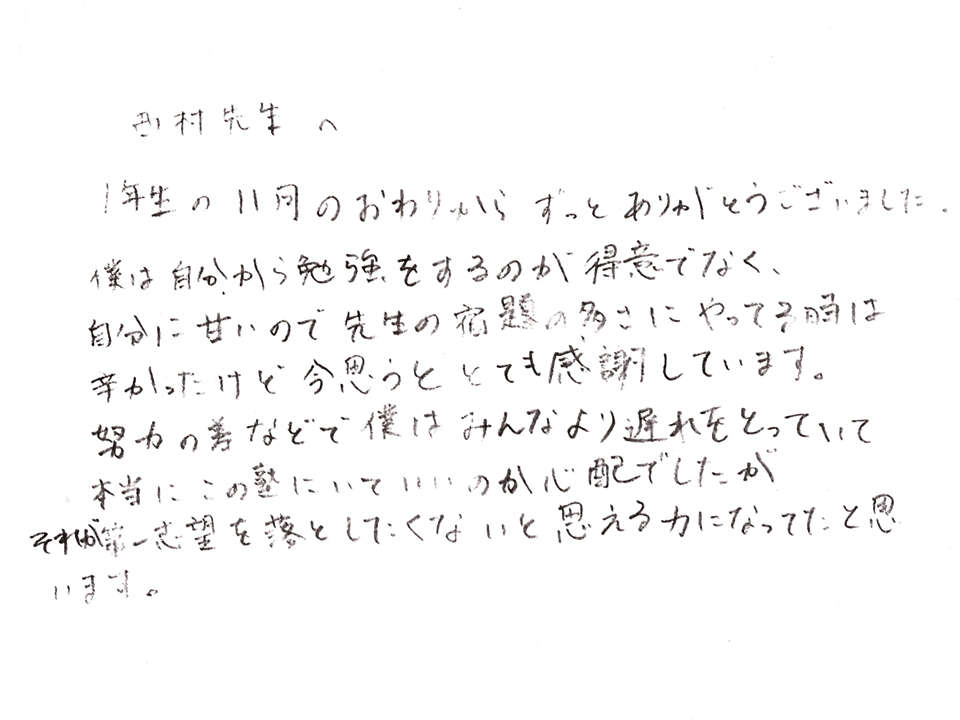 西村先生へ
1年生の11月のおわりからずっとありがとうございました.
僕は自分から勉強をするのが得意でなく、
自分に甘いので先生の宿題の多さにやってる時は
辛かったけど今思うととても感謝しています。
努力の差などで僕はみんなより遅れをとっていて
本当にこの塾にいていいのか心配でしたが
それが第一志望を落としたくないと思える力になってたと思
います。